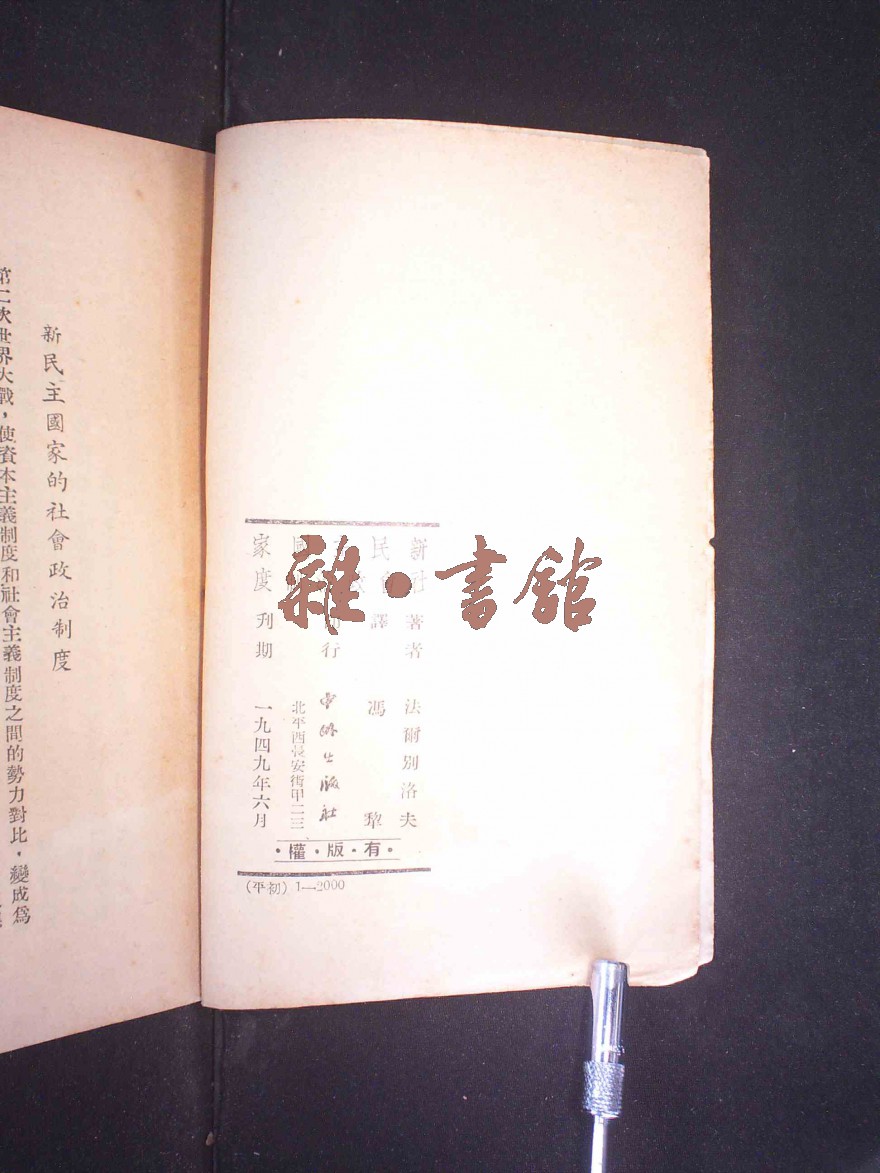 新民國家
社會度
著者 法爾別洛夫
譯 馮犂
行 中外出版社
北平西長安街甲二三
刊期 一九四九年六月
·有·版·權·
(平初) 1—2000
雜·書館
新民主國家的社會政治制度
第二次世界大戰，使資本主義制度和社會主義制度之間的勢力對比，變成爲